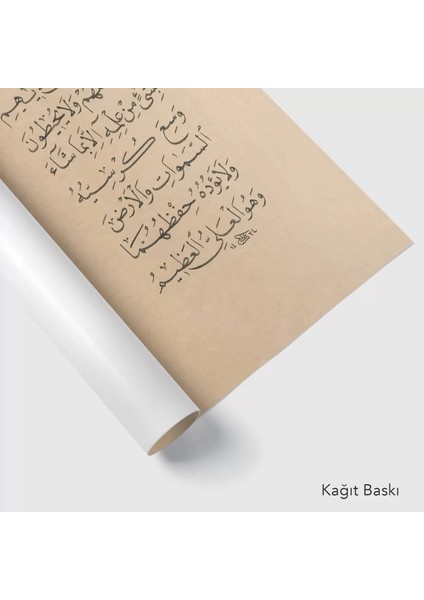 يهم
هم ولا يحيطون
بشيء من علمه إلا بما شاء
وسع كرسيه
السموات والأرض
ولا يؤده حفظهما
وهو العلي العظيم
Kağıt Baskı